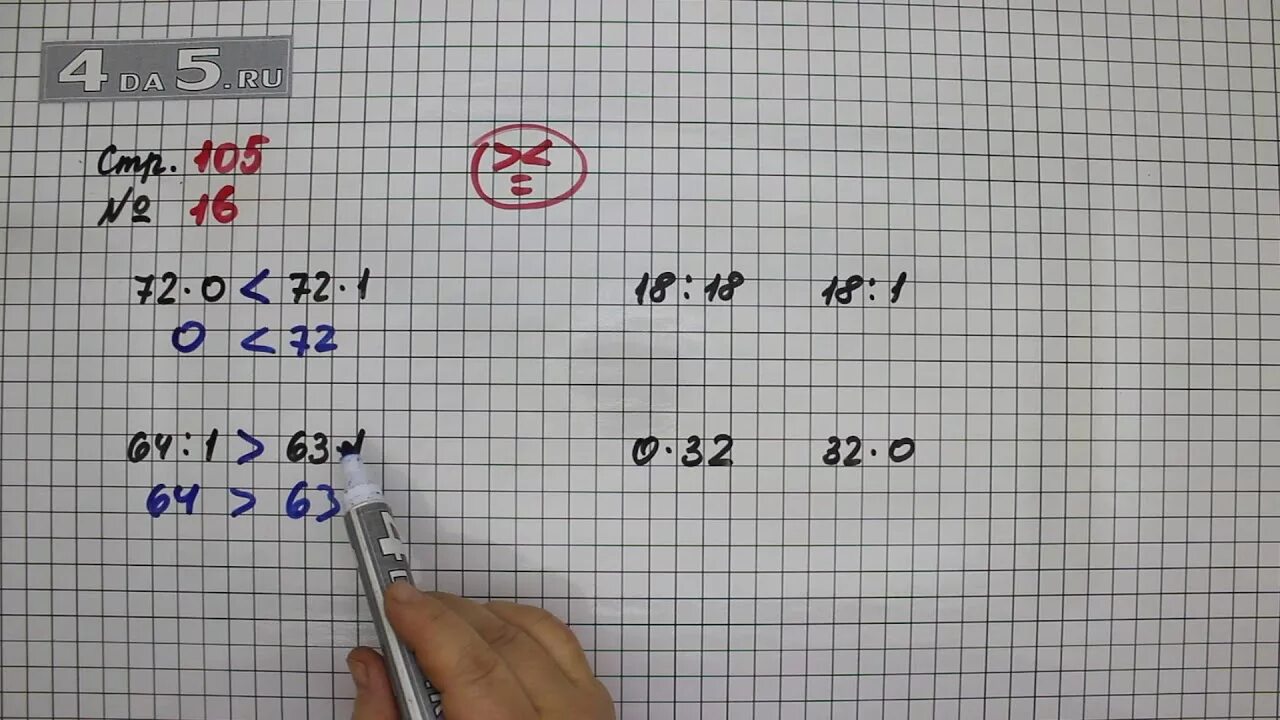 4 DA 5.RU
Стр. 105
№ 16
> <
=
72·0 < 72·1
0 < 72
18:18 18:1
64:1 > 63·1
64 > 63
0·32 32·0